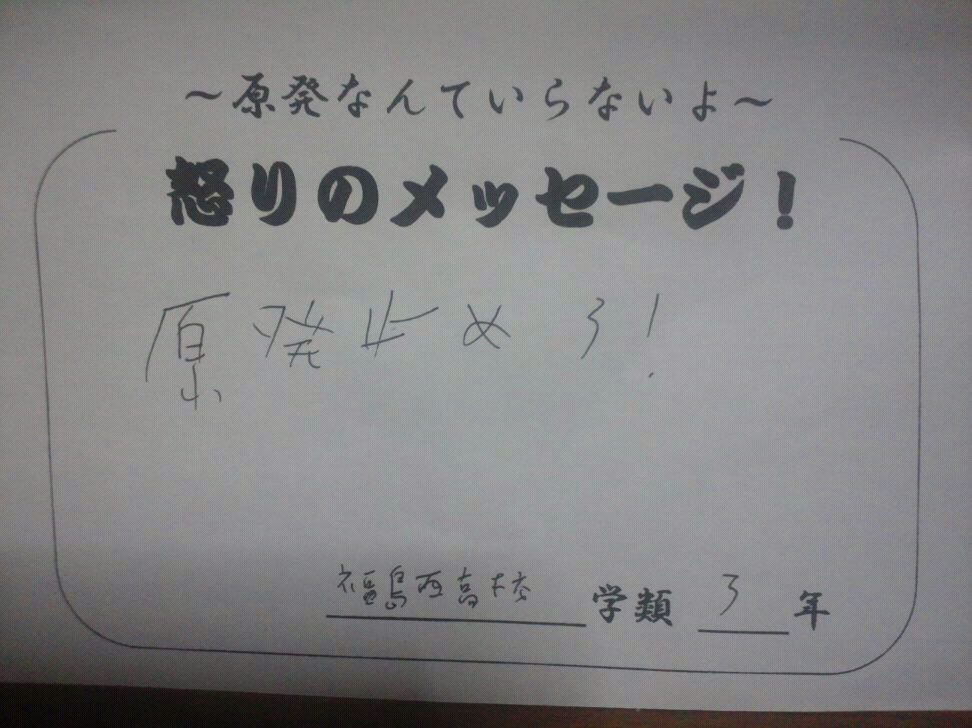 ～原発なんていらないよ～
怒りのメッセージ！
原発止めろ！
福島西高校 学類 3 年